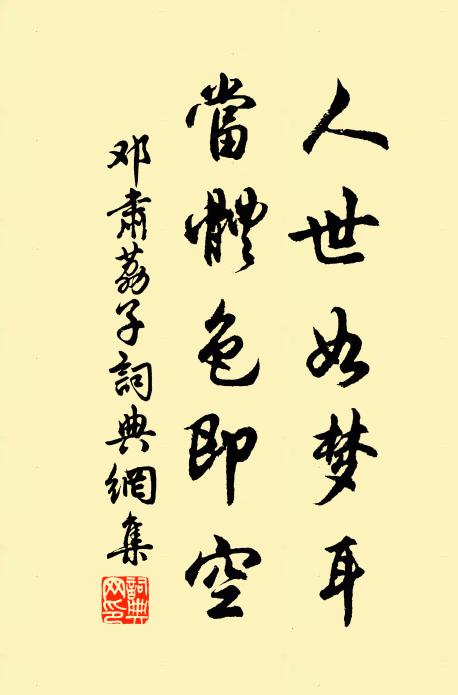 人世如梦耳
當體色即空
邓肅荔子詞典網集
詞典网印